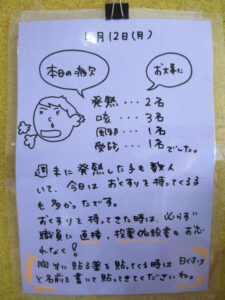 月12日(月)
本日の病欠
お大事に
発熱・・・2名
咳・・・3名
風邪・・・1名
発疹・・・1名
でした。
週末に発熱した子も数人
いて、今日はおくすりを持ってくる子
も多かったです。
おくすりを持ってきた時は、必らず
職員に直接、投薬依頼書もお忘
れなく!
胸等に貼る薬を貼ってくる時は日にち
と名前を書いて貼ってきてくださいね。